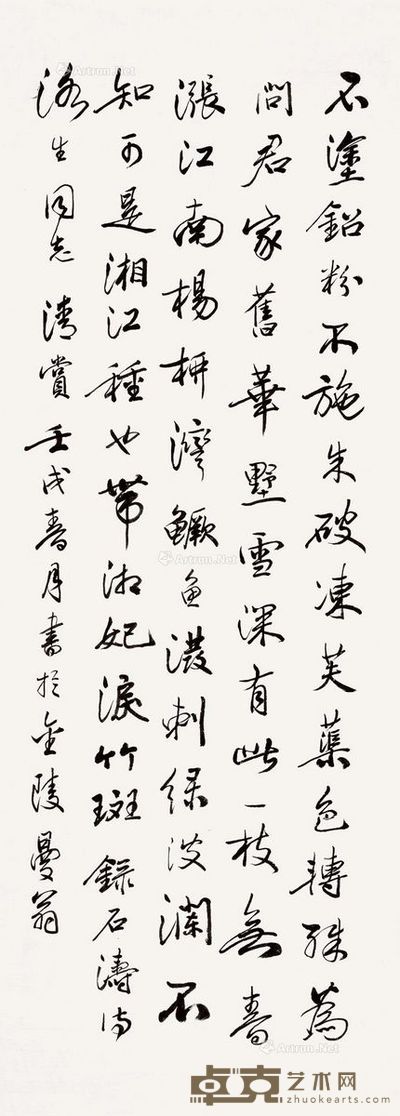 不塗鉛粉不施朱破凍芙蕖色轉殊為
問君家舊華墅雪深有此一枝無春
漲江南楊柳灣鱖魚潑刺綠波瀾不
知可是湘江種也帶湘妃淚竹斑 錄石濤詩
生同志清賞 壬戌春月書於金陵曼翁
Artron.Net
Artron.Net
Artron.Net
卓克艺术网
zhuokearts.com